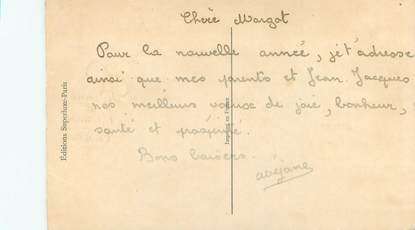 Chère Margot
Pour la nouvelle année, je t'adresse
ainsi que mes parents et Jean Jacques
nos meilleurs voeux de joie, bonheur,
santé et prospérité.
Bons baisers.
Editions Superluxe-Paris
Imprimé en France